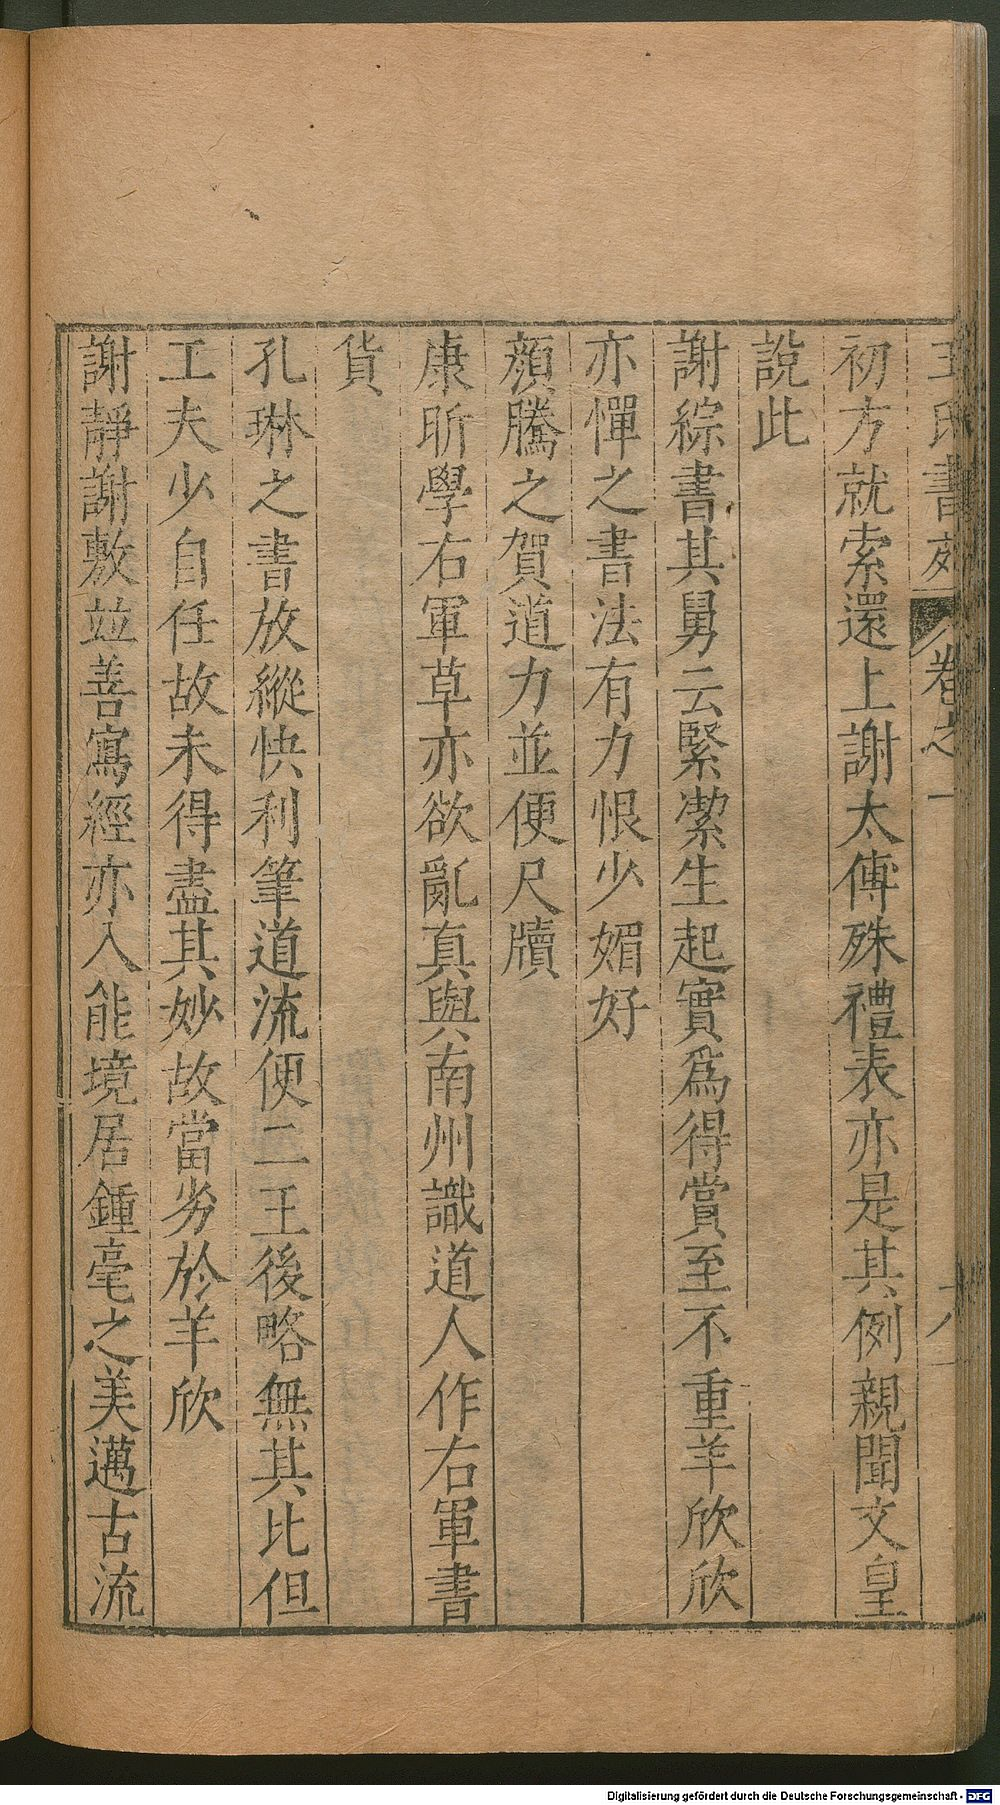 王氏書苑 卷之一 六
初方就索還上謝太傅殊禮表亦是其例親聞文皇
說此
謝綜書其舅云緊潔生起實爲得賞至不重羊欣欣
亦憚之書法有力恨少媚好
顏騰之賀道力並便尺牘
康昕學右軍草亦欲亂真與南州識道人作右軍書
貨
孔琳之書放縱快利筆道流便二王後略無其比但
工夫少自任故未得盡其妙故當劣於羊欣
謝靜謝敷並善寫經亦入能境居鍾毫之美邁古流
Digitalisierung gefördert durch die Deutsche Forschungsgemeinschaft - DFG